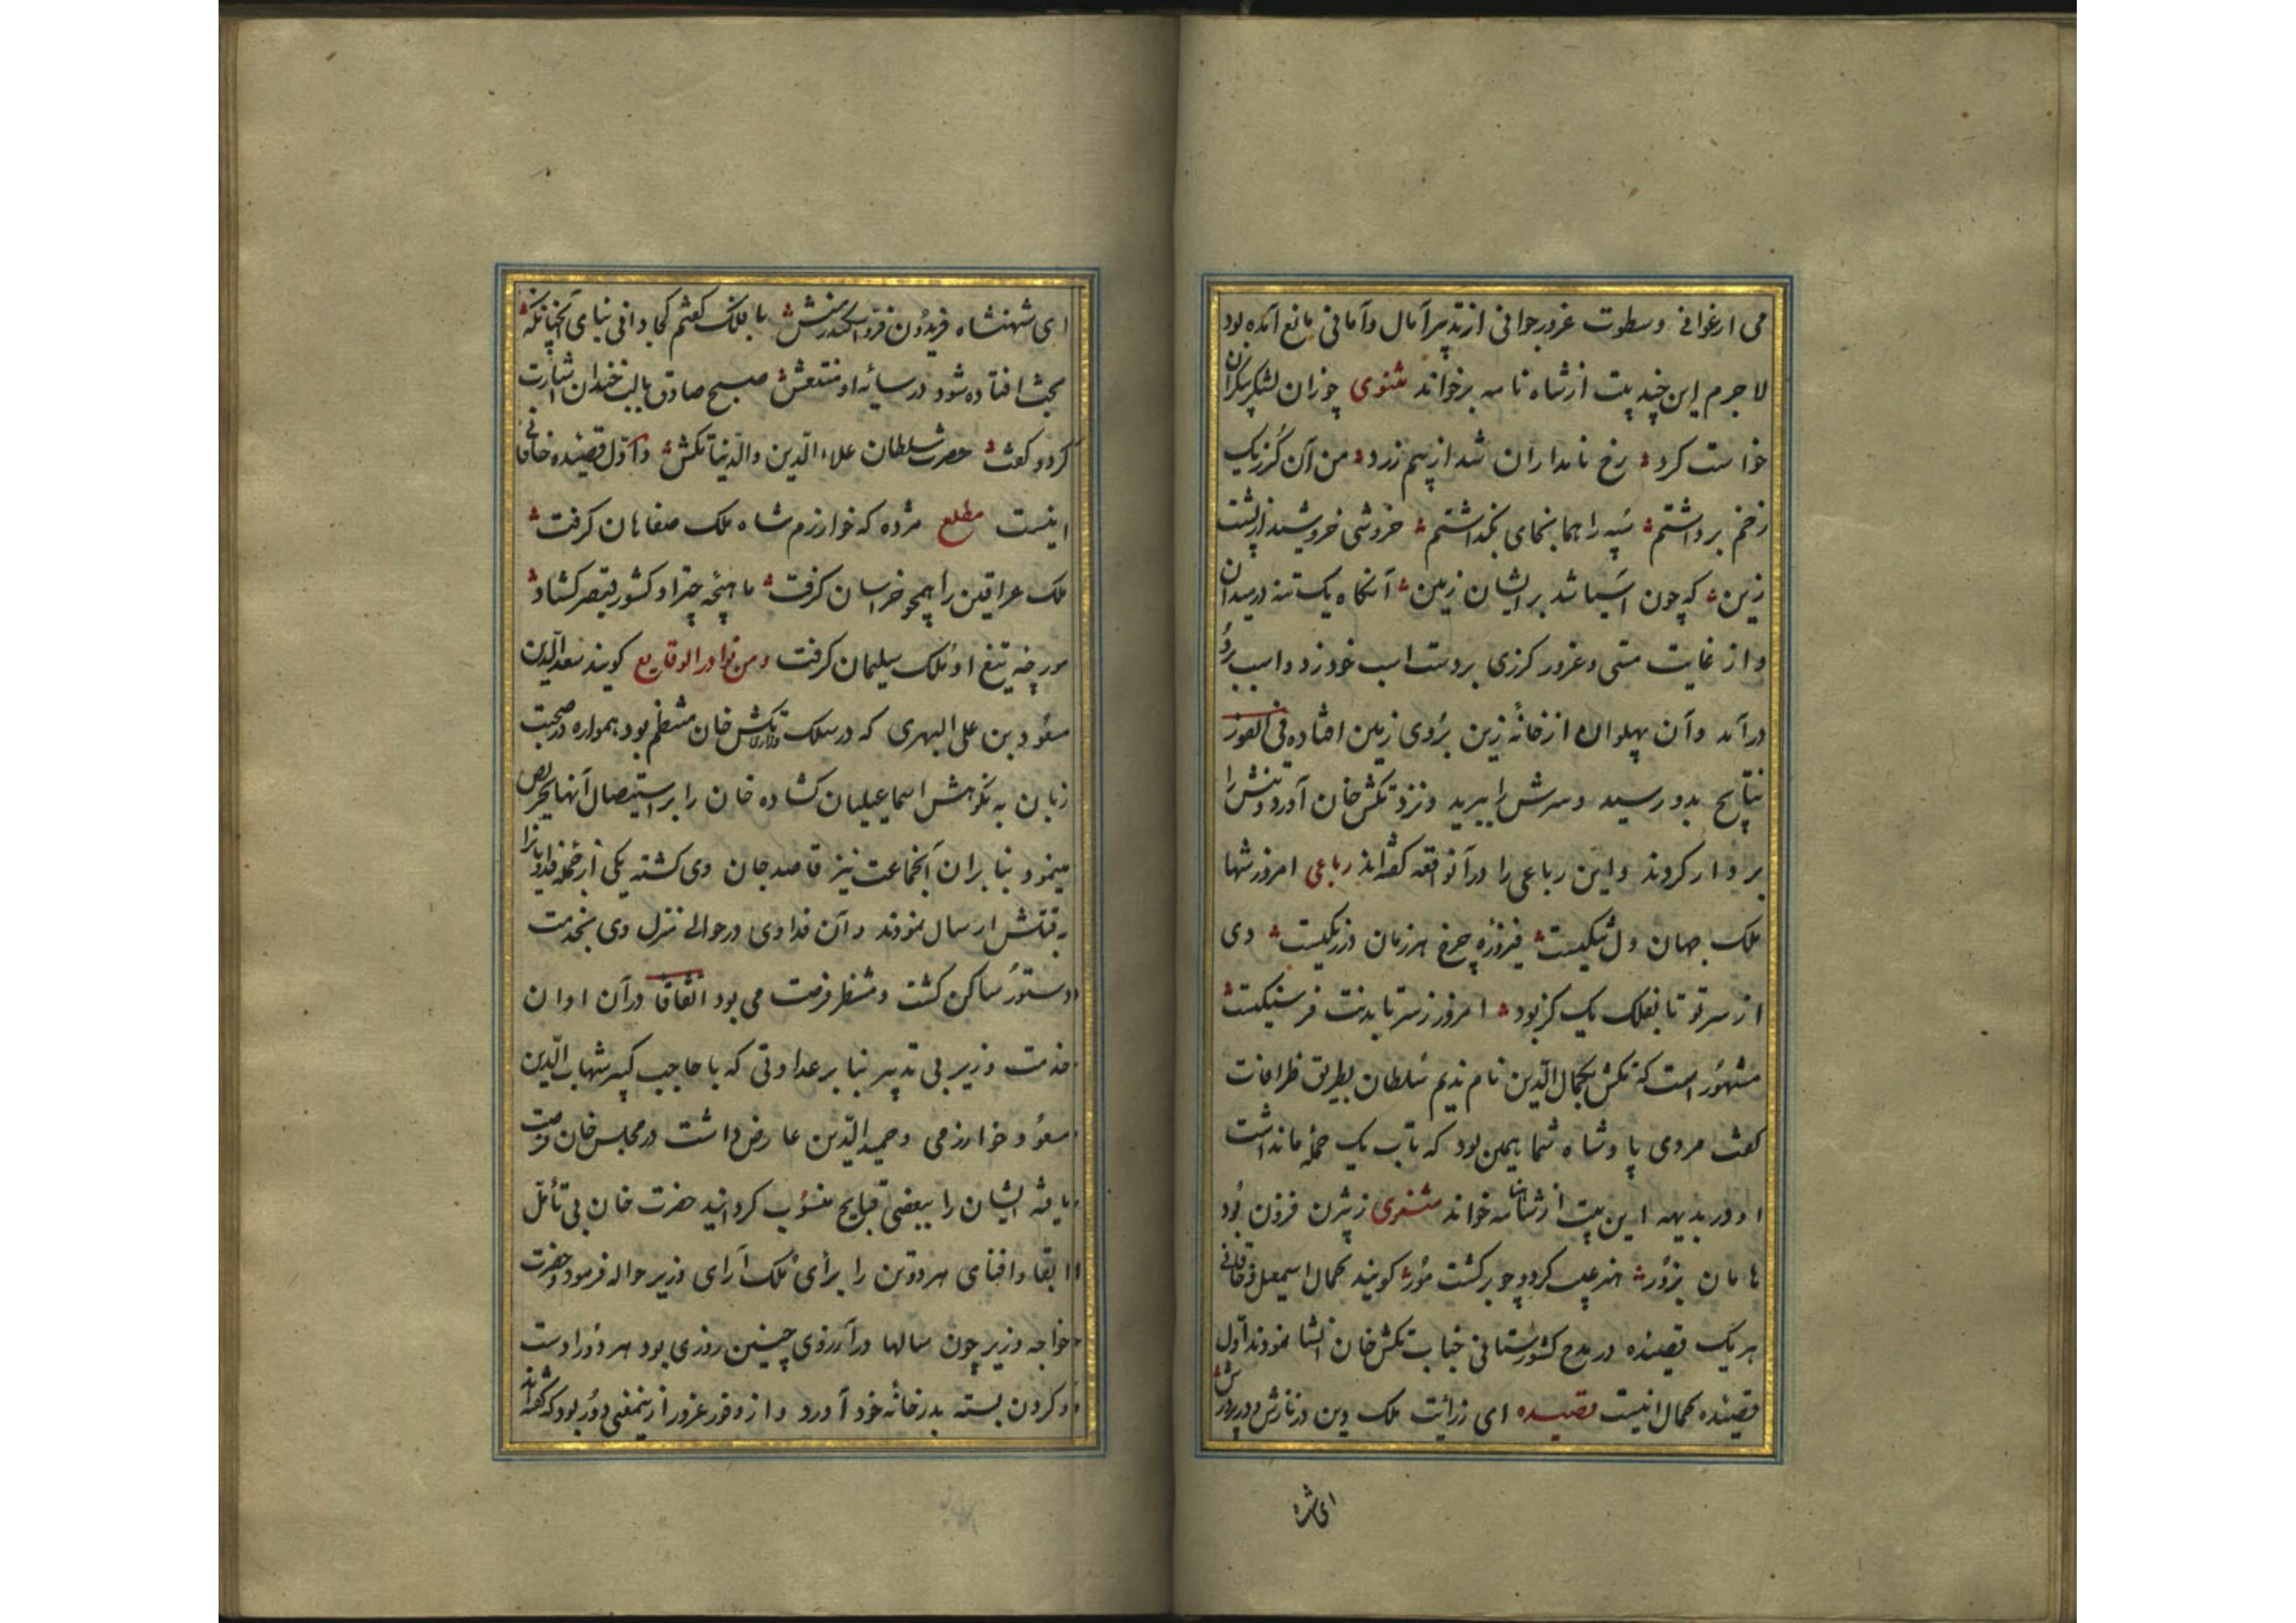 می ارغوانی وسطوت غرور جوانی از تدبیر آمال وآمانی مانع آمده بود
لا جرم این چند بیت از شاه نامه برخواند مثنوی چو زان لشکر بیکران
خواست کرد رخ نامداران شد از بیم زرد من آن گرز یک
زخم برداشتم سپه را هما نجای بگذاشتم خروشی خروشیدم از پشت
زین که چون آسیا شد بر ایشان زمین آنکاه یک تنه در میدان
و از غایت مستی و غرور کرزی بر دست اسب خود زد و اسب برو
در آمد و آن پهلوان از خانهٔ زین بروی زمین افتاده فی الفور
بدو رسید و سرش را ببرید و نزد تکش خان آورد و تنش را
بر دار کردند و این رباعی را در آنواقعه کفته اند رباعی امروز شها
ملک جهان و فیروزه چرخ هر زمان در
از سر تو تا بفلک یک کز بود امروز ز سر تا بدنت فرسنکیست
مشهور است که تکش بجمال الدین نام ندیم سلطان بطریق ظرافت
کفت مردی پادشاه شما همین بود که تاب یک حمله ما نداشت
او در بدیهه این بیت از شاهنامه خواند مثنوی ز بیژن فزون بود
هامان بزور هنر عیب کردد چو برکشت هور کویند کمال اسمعیل و خاقانی
هر یک قصیده در مدح کشورستانی جناب تکش خان انشا نمودند اول
قصیده کمال اینست قصیده ای ز رایت ملک و دین در نازش و در پرورش
ای شه
ای شهنشاه فریدون فر و اسکندر منش با فلک کفتم کجا دانی بنای آنچنانکه
بخت افتاده شود در سایهٔ او منتعش صبح صادق با لب خندان اشارت
کرد و کفت حضرت سلطان علاء الدین والدنیا تکش و اول قصیده خاقانی
اینست مطلع مژده که خوارزم شاه ملک صفاهان کرفت
ملک عراقین را همچو خراسان کرفت ماهچه چتر او کشور قیصر کشاد
مورچه تیغ او ملک سلیمان کرفت ومن نوادر الوقایع کویند سعد الدین
مسعود بن علی الهروی که در سلک وزارت تکش خان منتظم بود همواره در صحبت
زبان به نکوهش اسماعیلیان کشاده خان را بر استیصال آنها تحریص
مینمود بنا بران آنجماعت نیز قاصد جان وی کشته یکی از جمله فداویانرا
به قتلش ارسال نمودند و آن فداوی در حوالی منزل وی بخدمت
دستور ساکن کشت و منتظر فرصت می بود اتفاقا در آن اوان
خدمت وزیر بی تدبیر بنا بر عداوتی که با حاجب کبیر شهاب الدین
مسعود خوارزمی و حمید الدین عارض داشت در مجلس خان فرصت
یافته ایشان را ببعضی قبایح منسوب کردانید حضرت خان بی تأمل
ابقا و افنای هر دو تن را برأی ملک آرای وزیر حواله فرمود و حضرت
خواجه وزیر چون سالها در آرزوی چنین روزی بود هر دو را دست
و کردن بسته بدر خانهٔ خود آورد و از وفور غرور ازینمعنی دور بود که کفته اند